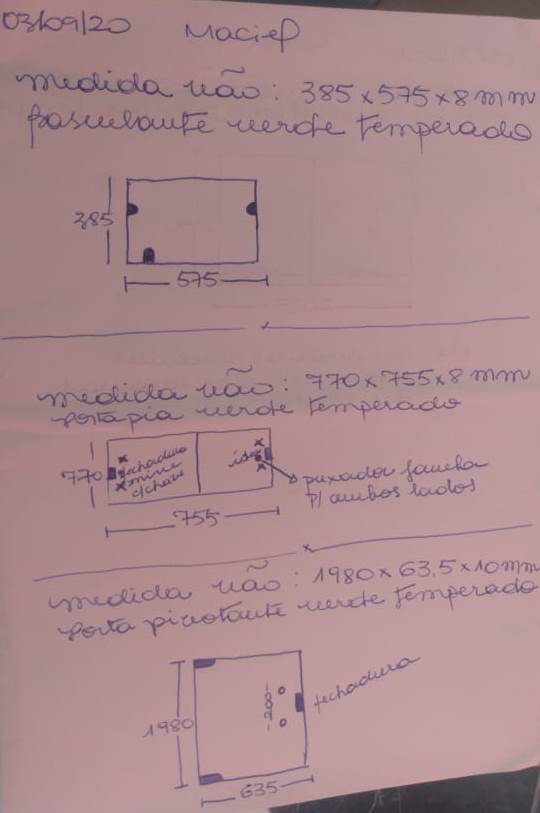 03/09/20 Maciel
medida vão: 385x575x8mm
basculante verde temperado
385
575
medida vão: 770x755x8mm
portapia verde temperado
770
fechadura
mine
c/chave
puxador famba
p/ ambos lados
755
medida vão: 1980x63.5x10mm
Porta pivotante verde temperado
1980
fechadura
635